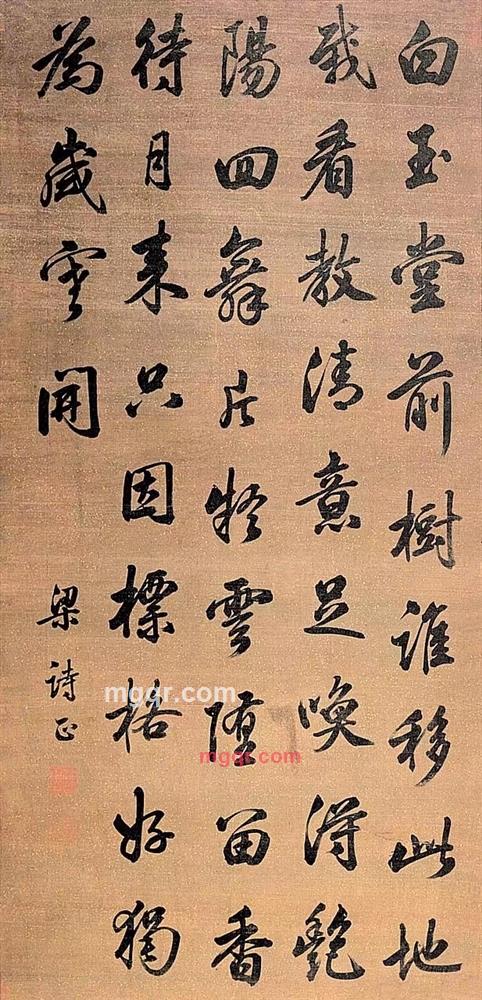 白玉堂前樹誰移此地
栽看教清意足喚得艷
陽回舞片疑雲墮留香
待月来只因標格好獨
為歲寒開
梁詩正
mgqr.com
mgqr.com